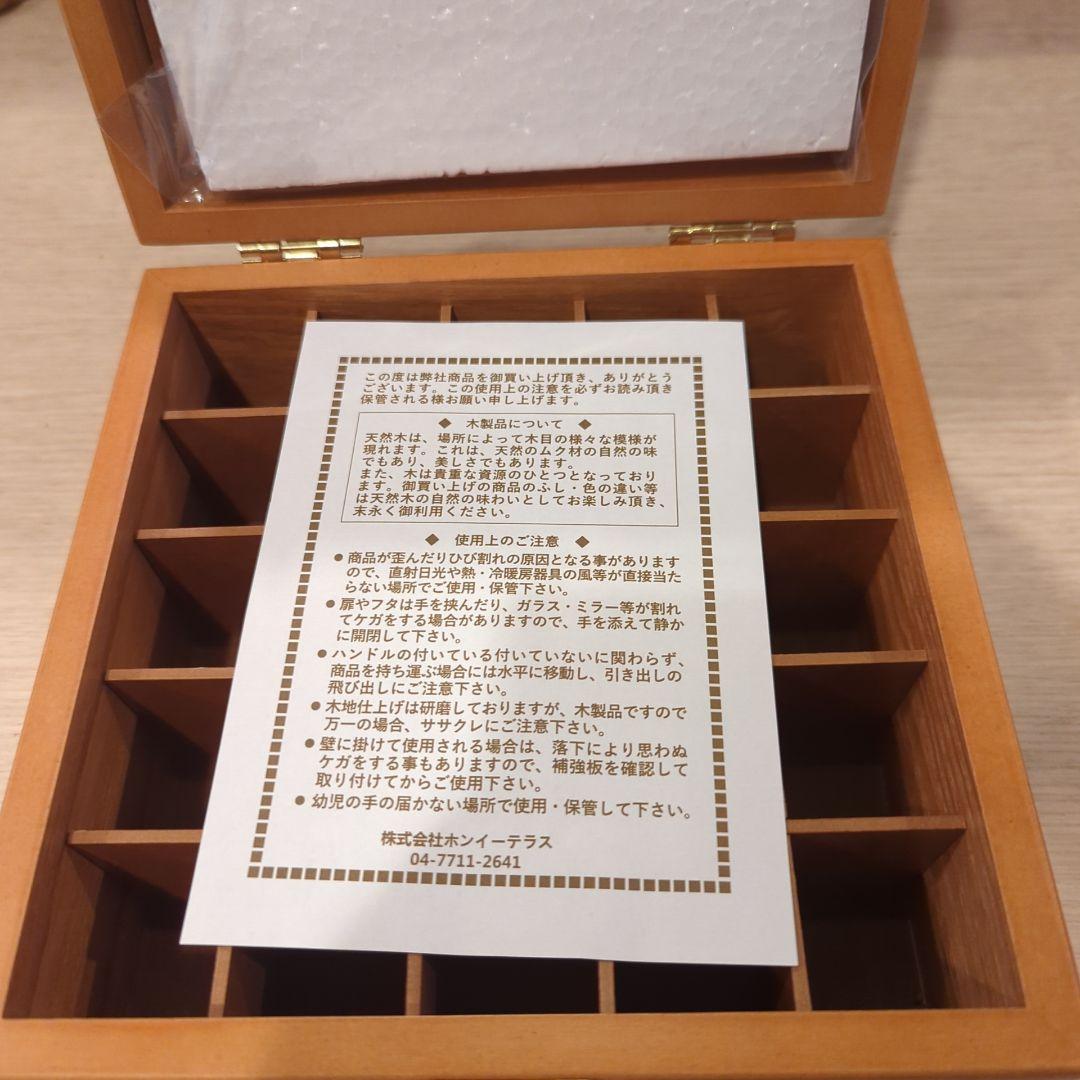 この度は弊社商品を御買い上げ頂き、ありがとう
ございます。この使用上の注意を必ずお読み頂き
保管される様お願い申し上げます。
◆ 木製品について ◆
天然木は、場所によって木目の様々な模様が
現れます。これは、天然のムク材の自然の味
でもあり、美しさでもあります。
また、木は貴重な資源のひとつとなっており
ます。御買い上げの商品のふし・色の違い等
は天然木の自然の味わいとしてお楽しみ頂き、
末永く御利用ください。
◆ 使用上のご注意 ◆
●商品が歪んだりひび割れの原因となる事があります
ので、直射日光や熱・冷暖房器具の風等が直接当た
らない場所でご使用・保管下さい。
●扉やフタは手を挟んだり、ガラス・ミラー等が割れ
てケガをする場合がありますので、手を添えて静か
に開閉して下さい。
●ハンドルの付いている付いていないに関わらず、
商品を持ち運ぶ場合には水平に移動し、引き出しの
飛び出しにご注意下さい。
●木地仕上げは研磨しておりますが、木製品ですので
万一の場合、ササクレにご注意下さい。
●壁に掛けて使用される場合は、落下により思わぬ
ケガをする事もありますので、補強板を確認して
取り付けてからご使用下さい。
●幼児の手の届かない場所で使用・保管して下さい。
株式会社ホンイーテラス
04-7711-2641